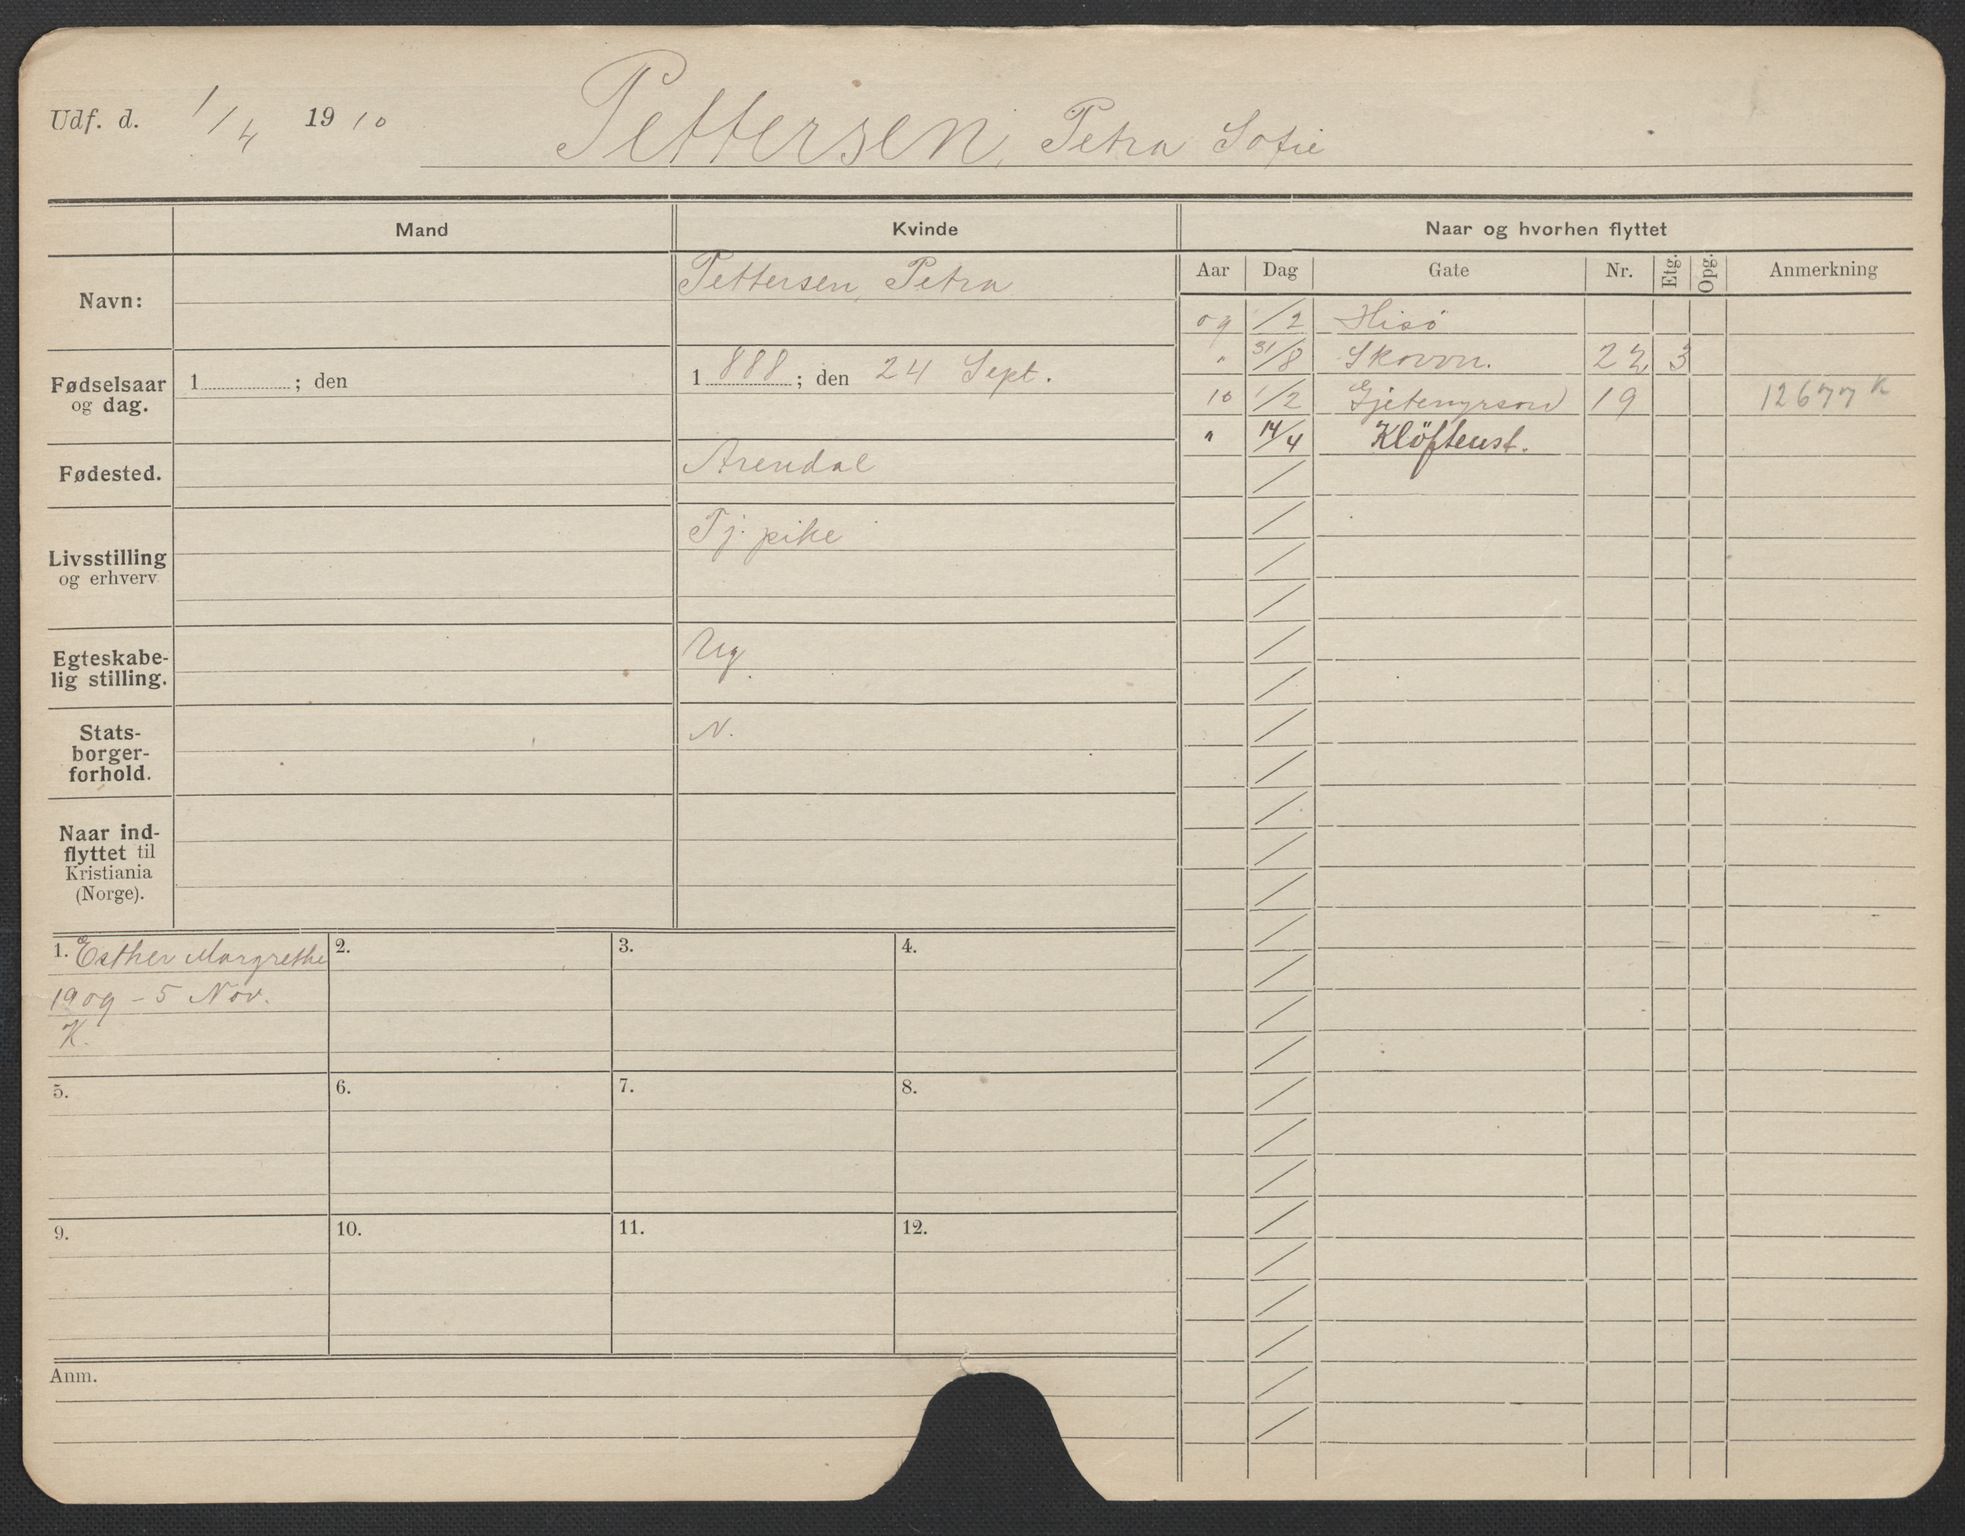 Udf. d. 1/4 1910 Pettersen, Petra Sofie
Mand Kvinde Naar og hvorhen flyttet
Aar Dag Gate Nr. Etg. Opg. Anmerkning
Navn: Pettersen, Petra
Fødselsaar
og dag. 1 ; den 1888 ; den 24 Sept.
Fødested. Arendal
Livsstilling
og erhverv Tj. pike
Egteskabe-
lig stilling. Ug.
Stats-
borger-
forhold. N.
Naar ind-
flyttet til
Kristiania
(Norge).
09 1/2 Hisö
" 31/8 Skovvn. 22 3
10 1/2 Gjetemyrsvn 19 12677 K
" 14/4 Klöftenst.
1. Esther Margrethe
1909 - 5 Nov.
K.
2. 3. 4.
5. 6. 7. 8.
9. 10. 11. 12.
Anm.